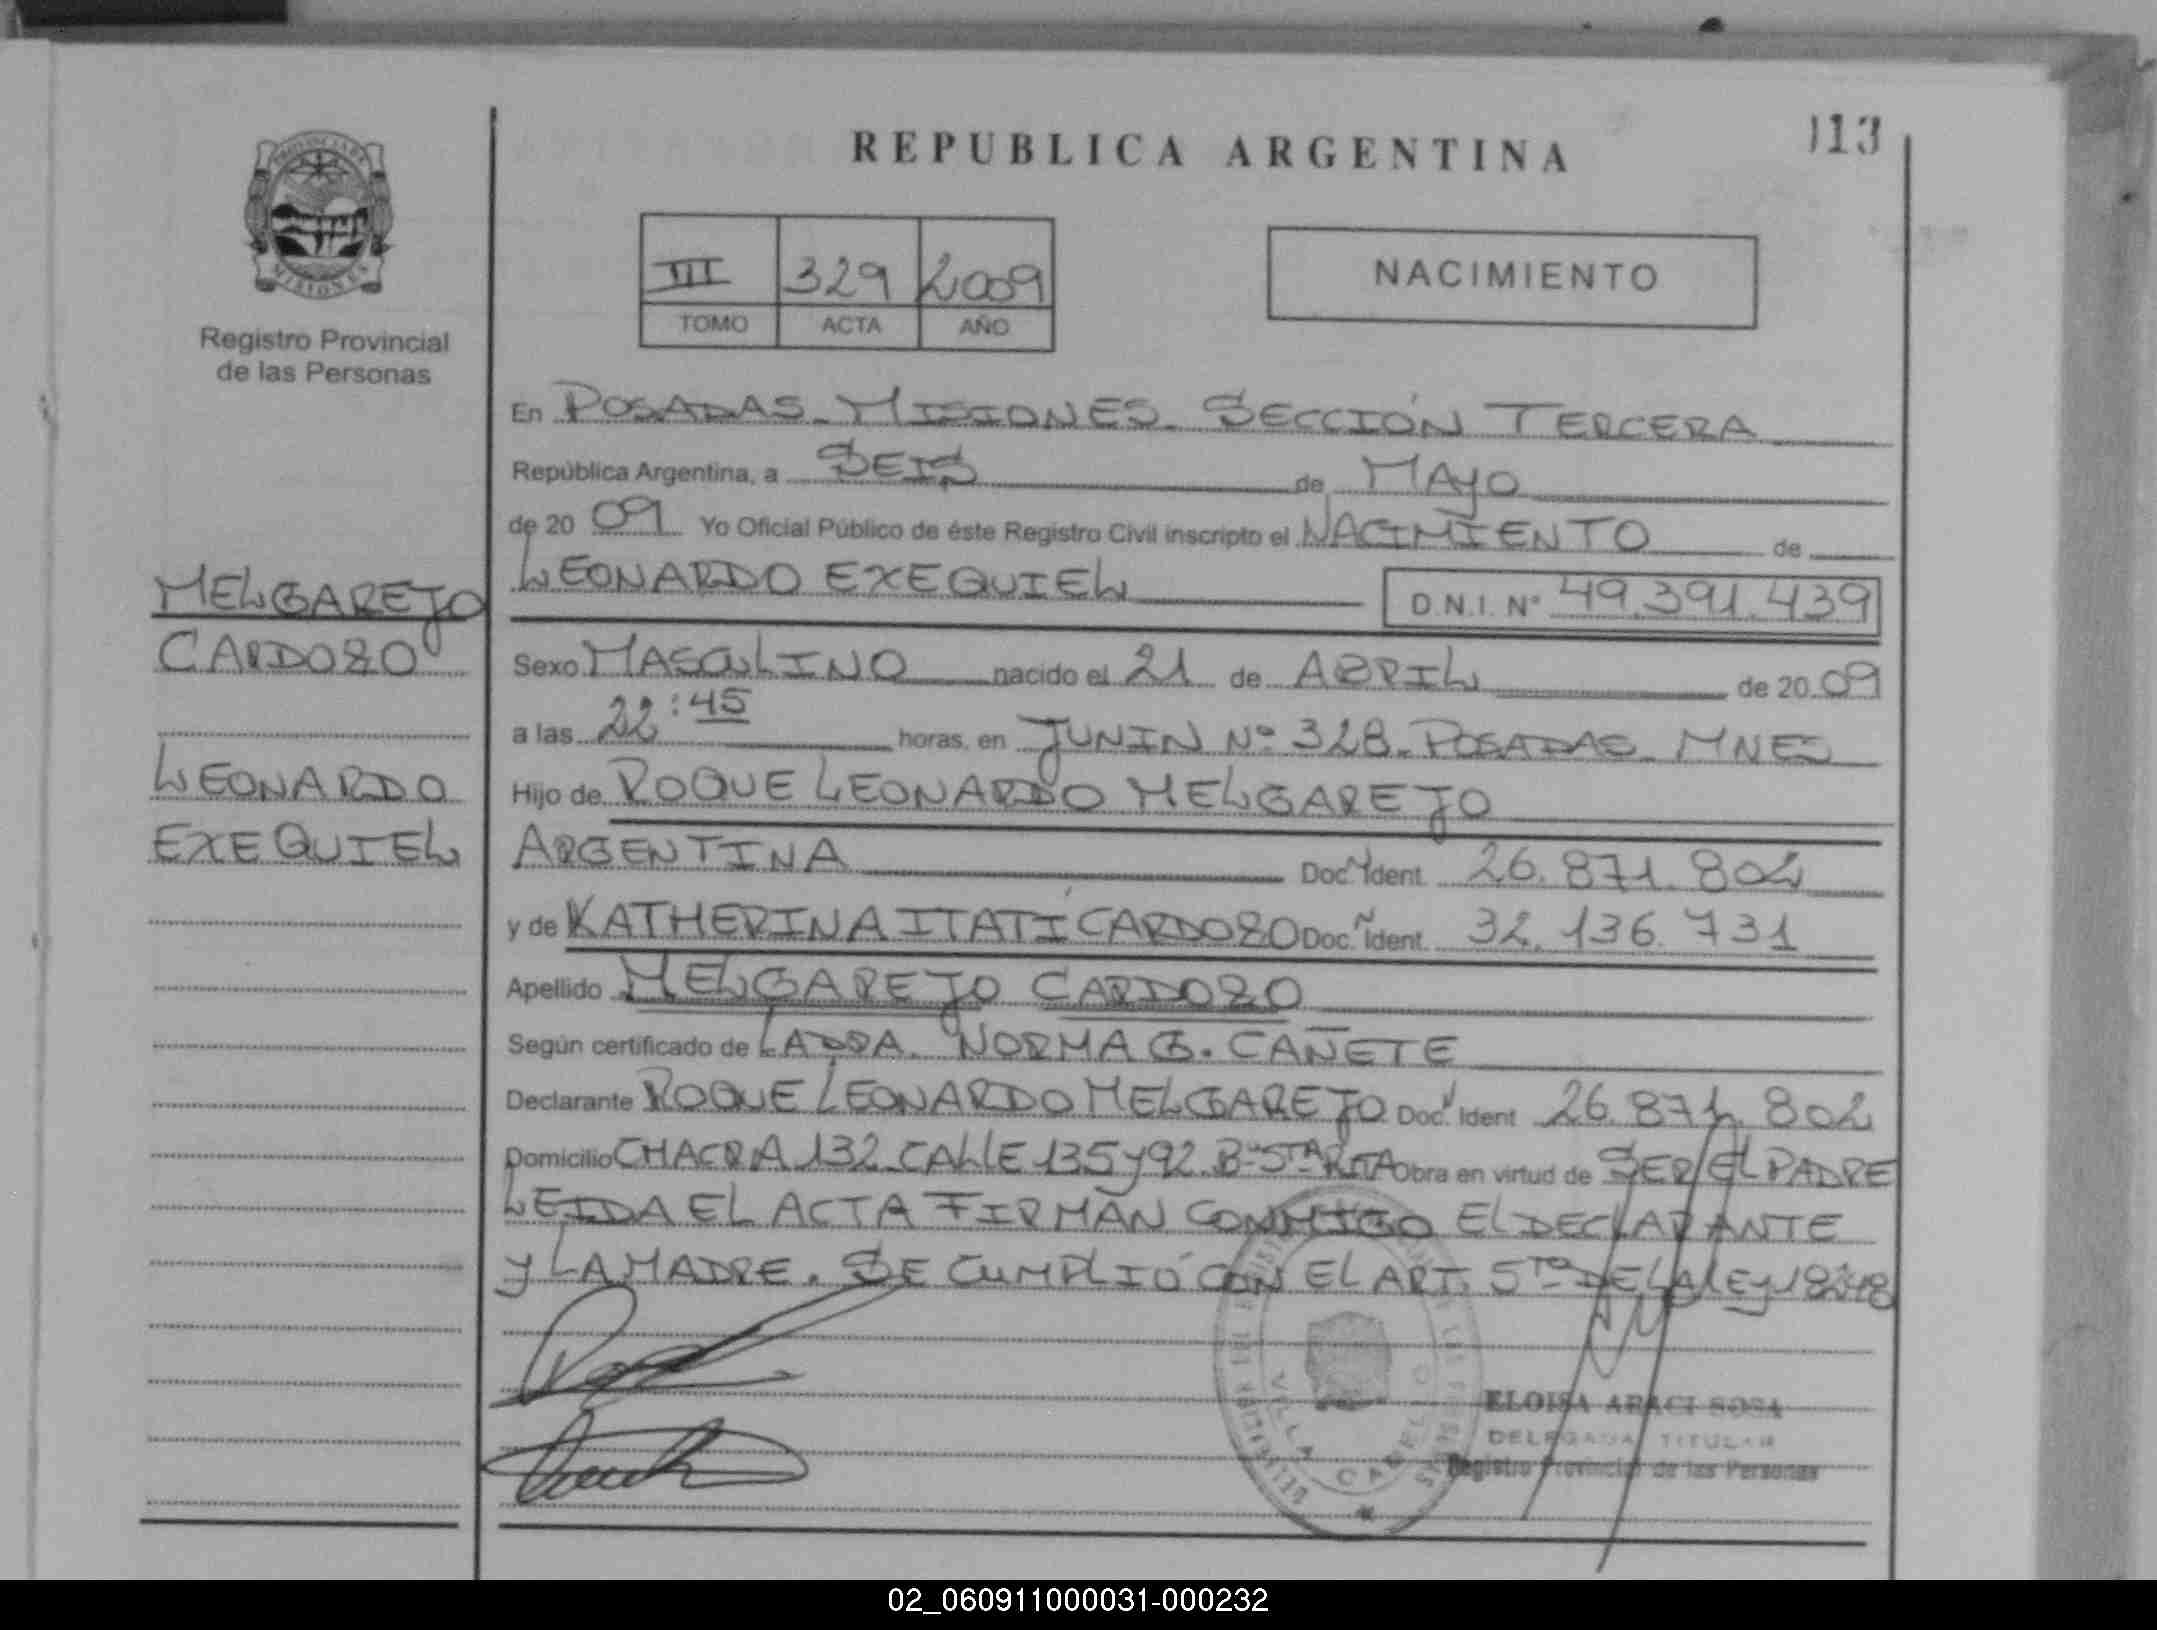 REPUBLICA ARGENTINA
113
PROVINCIA DE
MISIONES
Registro Provincial
de las Personas
III 329 2009
TOMO ACTA AÑO
NACIMIENTO
En POSADAS - MISIONES - SECCIÓN TERCERA
República Argentina, a SEIS de MAYO
de 20 09 Yo Oficial Público de éste Registro Civil inscripto el NACIMIENTO de
LEONARDO EXEQUIEL D.N.I. Nº 49.391.439
MELGAREJO
CARDOZO
LEONARDO
EXEQUIEL
Sexo MASCULINO nacido el 21 de ABRIL de 20 09
a las 22:45 horas, en JUNIN Nº 328 - POSADAS - MNES
Hijo de ROQUE LEONARDO MELGAREJO
ARGENTINA Doc. Ident. 26.871.802
y de KATHERINA ITATÍ CARDOZO Doc. Ident. 32.136.731
Apellido MELGAREJO CARDOZO
Según certificado de LA DRA. NORMA G. CAÑETE
Declarante ROQUE LEONARDO MELGAREJO Doc. Ident 26.871.802
Domicilio CHACRA 132 CALLE 135 y 92 Bº STA RITA Obra en virtud de SER EL PADRE
LEIDA EL ACTA FIRMAN CONMIGO EL DECLARANTE
Y LA MADRE. SE CUMPLIÓ CON EL ART. 5TO DE LA LEY 18248
VILLA CABELLO
ELOISA ARACI SOSA
DELEGADA TITULAR
Registro Provincial de las Personas
02_060911000031-000232